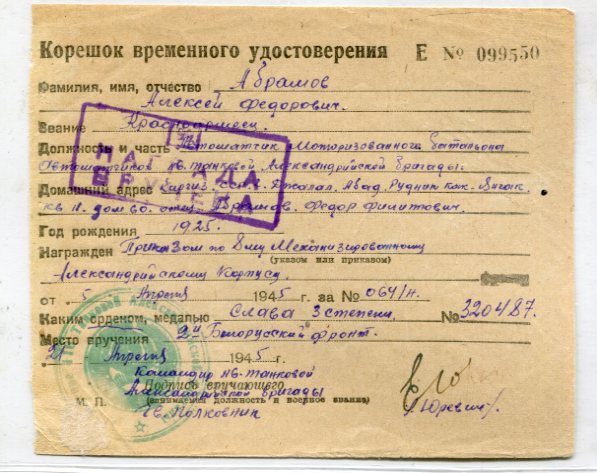 Корешок временного удостоверения Е № 099550
Фамилия, имя, отчество Абрамов
Алексей Федорович.
Звание Красноармеец
Должность и часть Автоматчик Моторизованного батальона
Автоматчиков гв. танковой Александрийской бригады.
Домашний адрес Киргиз. ССР. Джалал. Абад. Рудник Кок-Янгак.
кв 11. дом 60. отец Абрамов. Федор Филиппович.
НАГРАДА
ВРУЧЕНА
Год рождения 1925.
Награжден Приказом по 8му Механизированному
(указом или приказом)
Александрийскому Корпусу.
от 5 Апреля 1945 г. за № 064/н.
Каким орденом, медалью Слава 3 степени, № 320487.
Место вручения 2й Белорусский фронт.
21 Апреля 1945 г.
Командир гв. танковой
Подпись вручающего
Александрийской бригады
М. П. (занимаемая должность и военное звание)
Гв. Полковник /Юревич/.